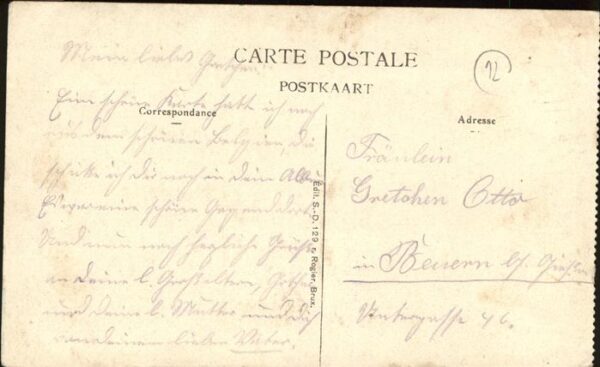 CARTE POSTALE
POSTKAART
12
Correspondance
Adresse
Mein liebes Gretchen!
Eine schöne Karte hatte ich noch
aus dem schönen Belgien, die
schicke ich Dir noch in Dein Alb.
Es war eine schöne Gegend dort.
Und nun noch herzliche Grüße
an Deine l. Großeltern,
und Deine l. Mutter und Dich
von Deinem lieben Vater.
Édit. S.-D. 129, Rogier, Brux.
Fräulein
Gretchen Otto
in Beuern b/
Untergasse 46.